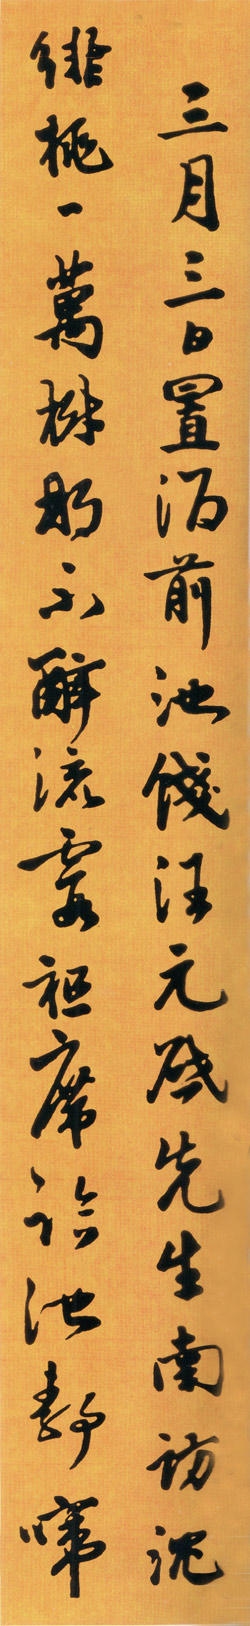 三月三日置酒前池餞汪元啟先生南訪沈
緋桃一萬株那不醉流霞祖席臨池靜啼